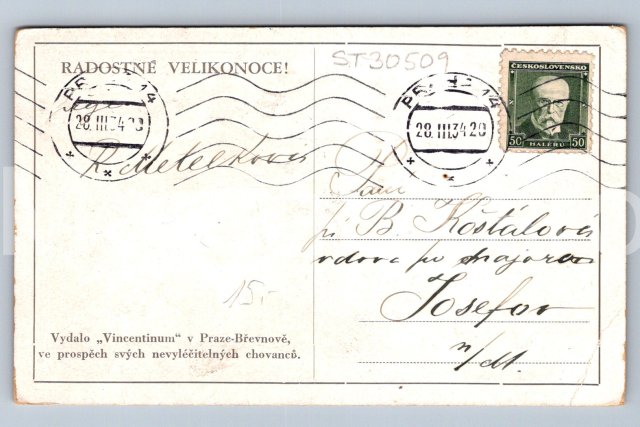 ST 30509
RADOSTNÉ VELIKONOCE!
PRAHA 14
28.III.34.20
PRAHA 14
28.III.34.20
ČESKOSLOVENSKO
50 HALÉŘŮ 50
R. Metelková
Paní
pí B. Košťálová
vdova po majorovi
Josefov
n/M.
15,-
Vydalo „Vincentinum“ v Praze-Břevnově,
ve prospěch svých nevyléčitelných chovanců.